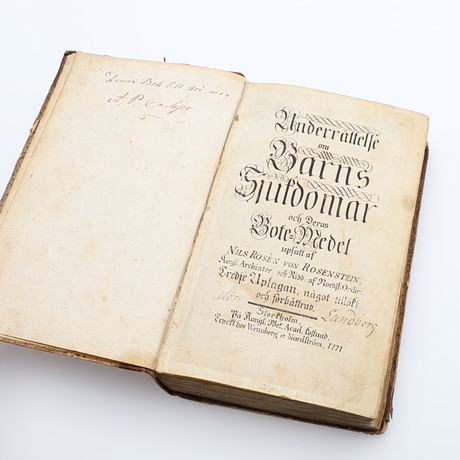 Denna Bok
A. P.
Underrättelse
om
Barns
Sjukdomar
och Deras
Bote-Medel
upsatt af
NILS ROSÉN VON ROSENSTEIN,
Kongl. Archiater, och Ridd. af Nordst. Orden.
Tredje Uplagan, något tillökt
och förbättrad.
Lundberg
Stockholm,
På Kongl. Wet. Acad. kostnad,
Tryckt hos Wennberg et Nordström, 1771